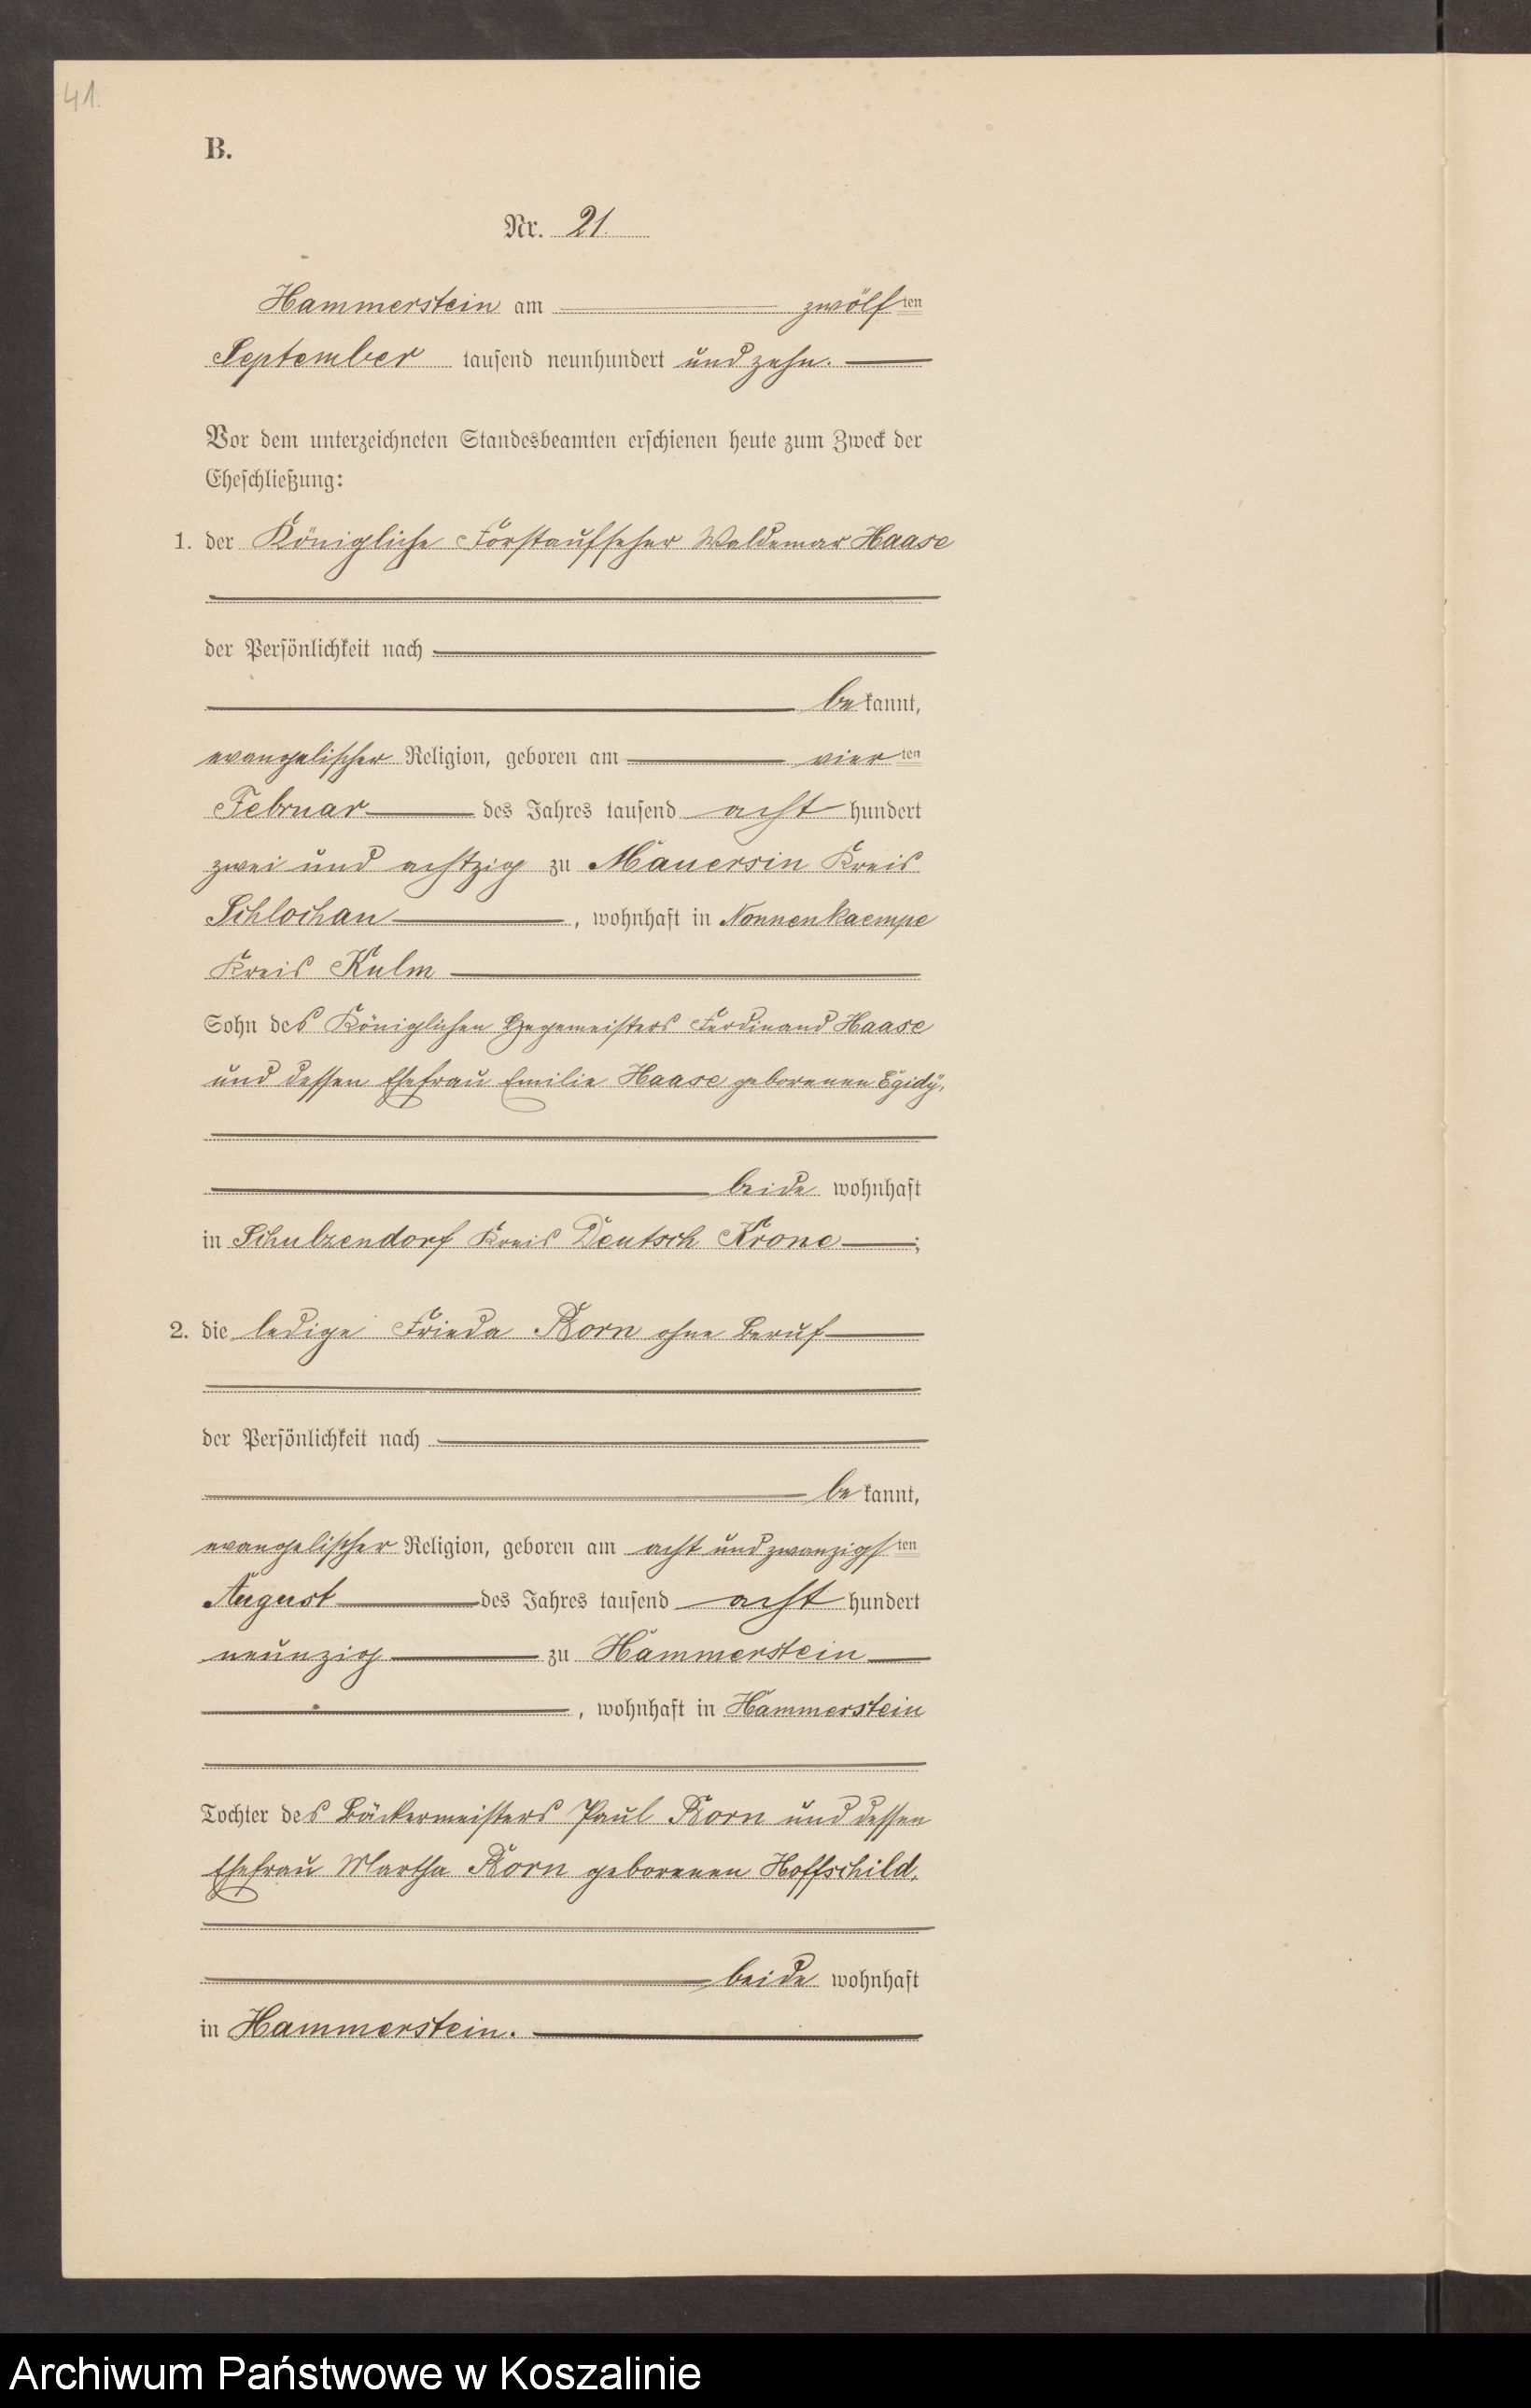 41.
B.
Nr. 21.
Hammerstein am zwölften
September tausend neunhundert und zehn.
Vor dem unterzeichneten Standesbeamten erschienen heute zum Zweck der
Eheschließung:
1. der Königliche Forstaufseher Waldemar Haase
der Persönlichkeit nach
bekannt,
evangelischer Religion, geboren am vierten
Februar des Jahres tausend acht hundert
zwei und achtzig zu Mauersin Kreis
Schlochau, wohnhaft in Nonnenkaempe
Kreis Kulm
Sohn des Königlichen Hegemeisters Ferdinand Haase
und dessen Ehefrau Emilie Haase geborenen Egidÿ,
beide wohnhaft
in Schulzendorf Kreis Deutsch Krone;
2. die ledige Frieda Born ohne Beruf
der Persönlichkeit nach
bekannt,
evangelischer Religion, geboren am acht und zwanzigsten
August des Jahres tausend acht hundert
neunzig zu Hammerstein
, wohnhaft in Hammerstein
Tochter des Bäckermeisters Paul Born und dessen
Ehefrau Martha Born geborenen Hoffschild,
beide wohnhaft
in Hammerstein.
Archiwum Państwowe w Koszalinie